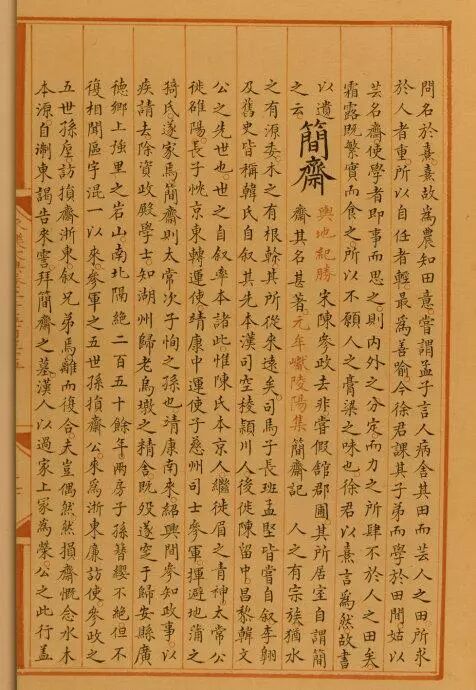 問名於熹熹故爲農知田意嘗謂孟子言人病舍其田而芸人之田所求
於人者重所以自任者輕最爲善喻今徐君課其子弟而學於田間姑以
芸名齋使學者即事而思之則内外之分定而力之所肆不於人之田矣
霜露既繁實而食之所以不願人之膏粱之味也徐君以熹言爲然故書
以遺
之云
簡齋
輿地紀勝 宋陳參政去非嘗假舘郡圃其所居室自謂簡
齋其名甚著 元牟巘陵陽集 簡齋記 人之有宗族猶水
之有源委木之有根幹其所從來遠矣司馬子長班孟堅皆嘗自叙李翺
及舊史皆稱韓氏自叙其先本漢司空稜潁川人後徙陳留中昌黎韓文
公之先世也世之自叙率本諸此惟陳氏本京人繼徙眉之青神太常公
徙雒陽長子恍京東轉運使靖康中運使子慈州司士參軍揮避地蒲之
猗氏遂家焉簡齋則太常次子恂之孫也靖康南来紹興間參知政事以
疾請去除資政殿學士知湖州歸老烏墩之精舍既殁遂窆于歸安縣廣
徳鄉上強里之岩山南北隔絶二百五十餘年兩房子孫簪纓不絶但不
復相聞區宇混一以來參軍之五世孫損齋公來爲浙東廉訪使參政之
五世孫垕訪損齋浙東叙兄弟焉離而復合夫豈偶然然損齋慨念水木
本源自淛東謁告来霅拜簡齋之墓漢人以過家上冢爲榮公之此行蓋